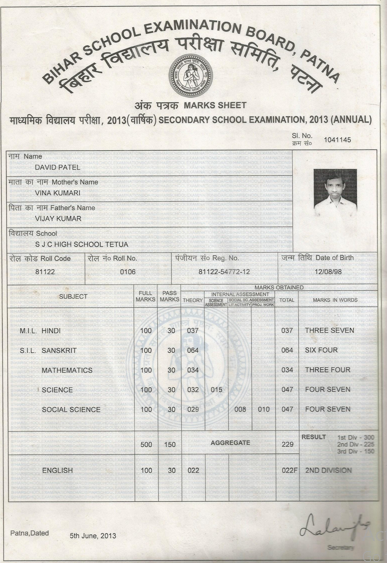 BIHAR SCHOOL EXAMINATION BOARD, PATNA
बिहार विद्यालय परीक्षा समिति, पटना
अंक पत्रक MARKS SHEET
माध्यमिक विद्यालय परीक्षा, 2013(वार्षिक) SECONDARY SCHOOL EXAMINATION, 2013 (ANNUAL)
Sl. No.
क्रम सं० 1041145
नाम Name
DAVID PATEL
माता का नाम Mother's Name
VINA KUMARI
पिता का नाम Father's Name
VIJAY KUMAR
विद्यालय School
S J C HIGH SCHOOL TETUA
रोल कोड Roll Code रोल नं० Roll No. पंजीयन सं० Reg. No. जन्म तिथि Date of Birth
81122 0106 81122-54772-12 12/08/98
MARKS OBTAINED
SUBJECT FULL MARKS PASS MARKS THEORY INTERNAL ASSESSMENT TOTAL MARKS IN WORDS
M.I.L. HINDI 100 30 037 037 THREE SEVEN
S.I.L. SANSKRIT 100 30 064 064 SIX FOUR
MATHEMATICS 100 30 034 034 THREE FOUR
SCIENCE 100 30 032 015 047 FOUR SEVEN
SOCIAL SCIENCE 100 30 029 008 010 047 FOUR SEVEN
500 150 AGGREGATE 229 RESULT 1st Div - 300
2nd Div - 225
3rd Div - 150
ENGLISH 100 30 022 022F 2ND DIVISION
Patna,Dated 5th June, 2013
Secretary